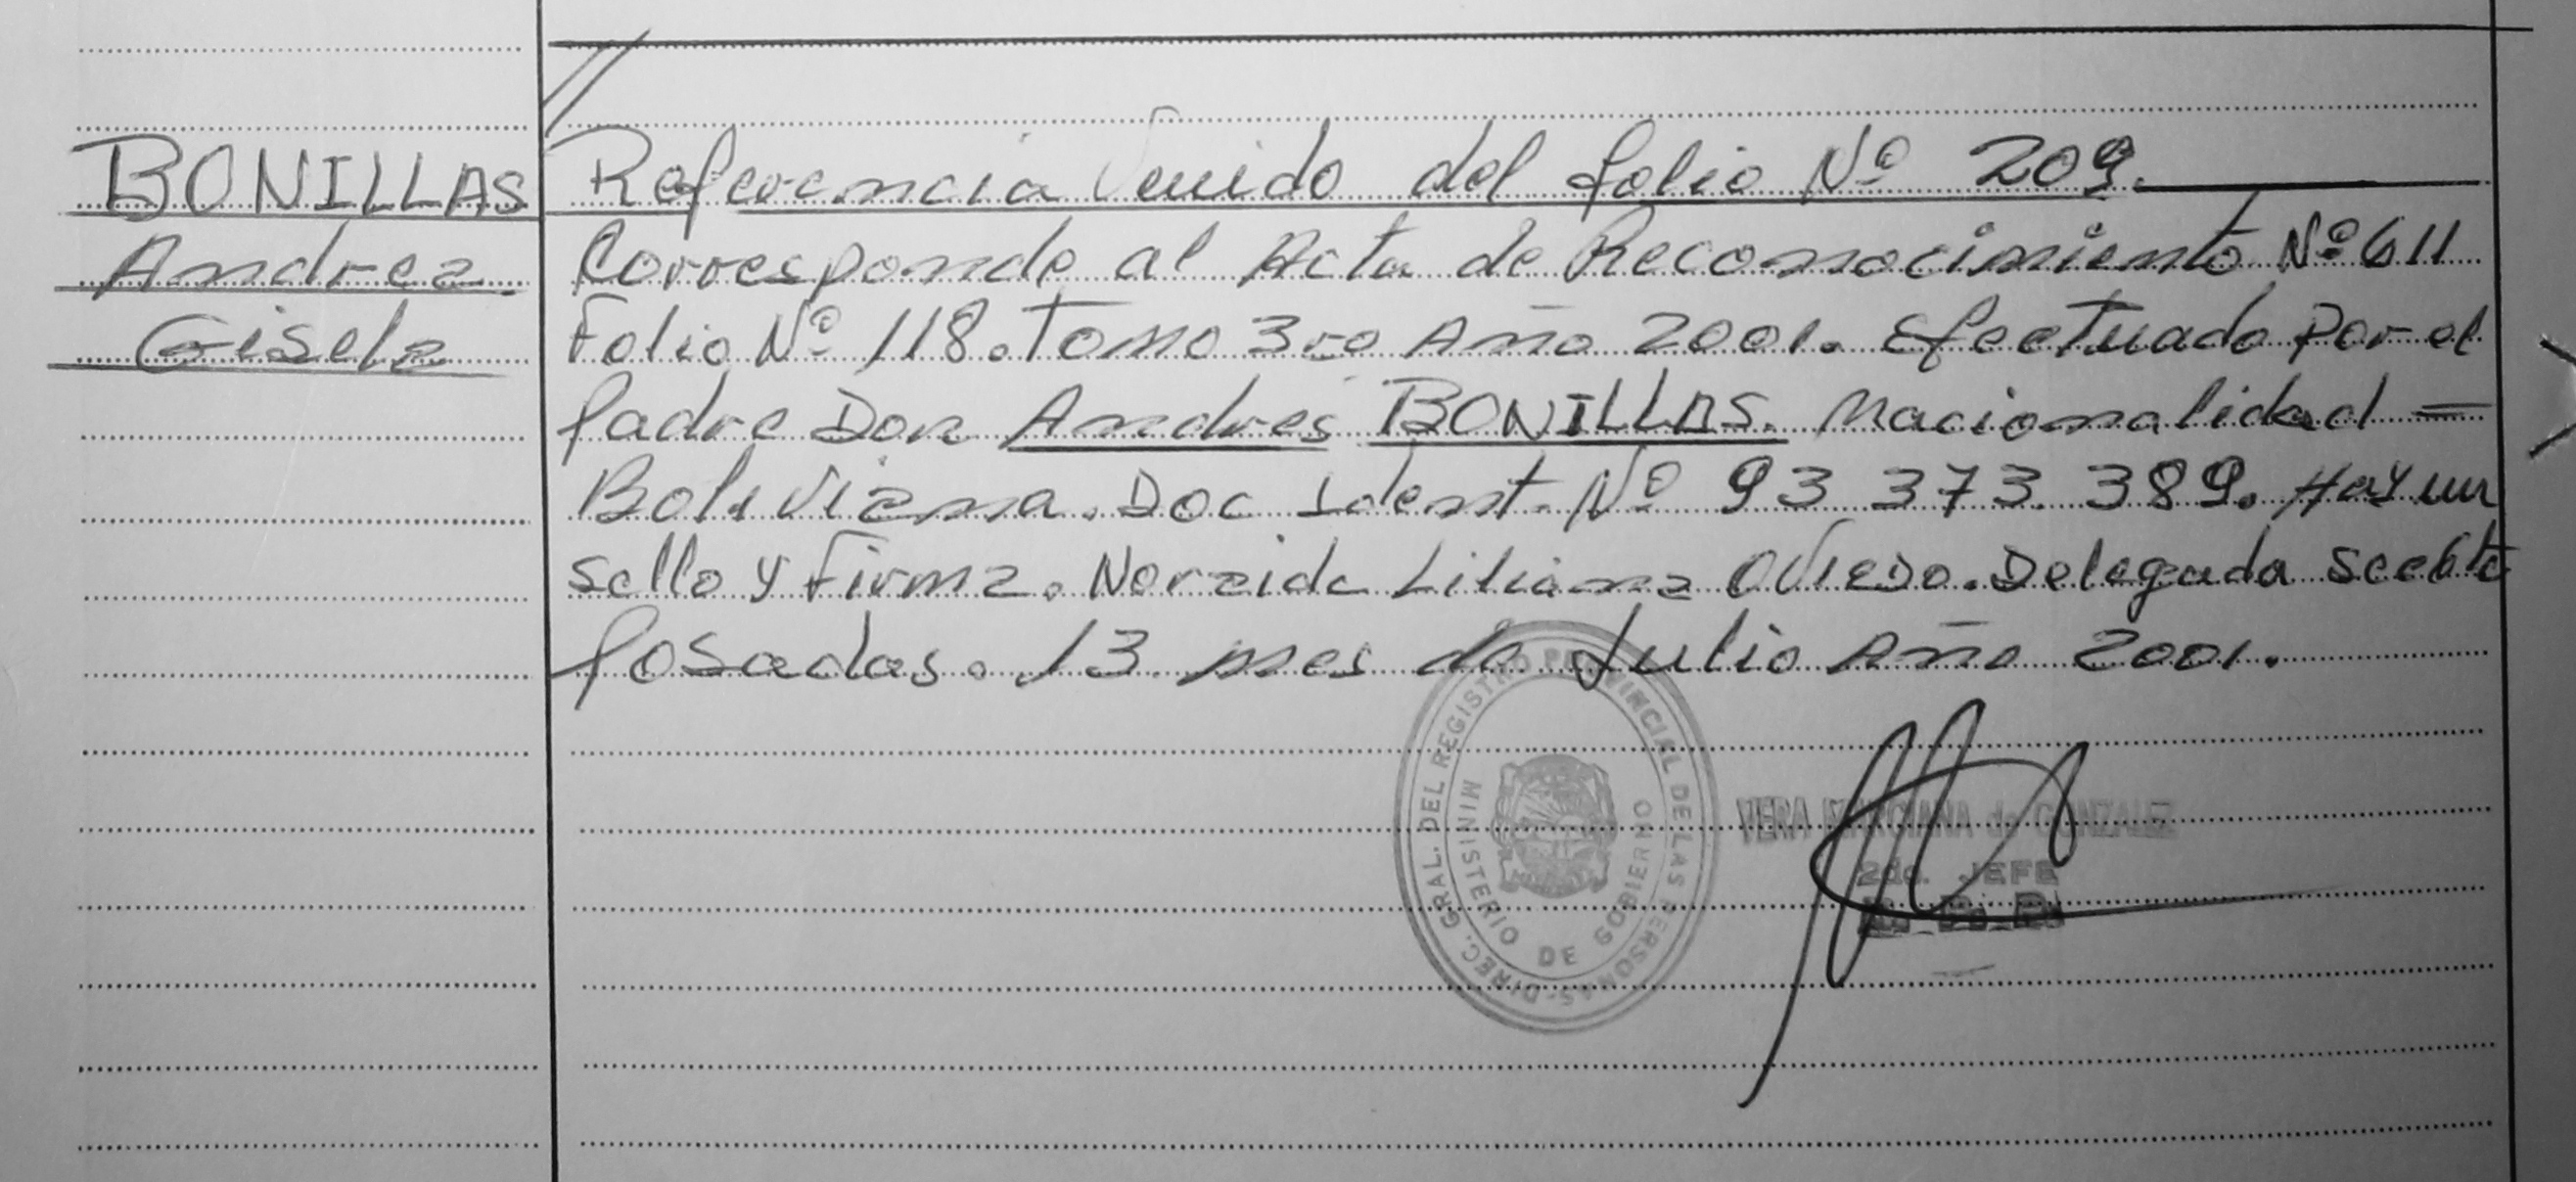 BONILLAS
Andrea
Gisela
Referencia Venido del folio Nº 209.
Corresponde al Acta de Reconocimiento Nº 611
Folio Nº 118. Tomo 3ro Año 2001. Efectuado Por el
Padre Don Andres BONILLAS. Nacionalidad =
Boliviana. Doc Ident. Nº 93 373.389. Hay un
sello y Firma. Noraida Liliana Oviedo. Delegada
Posadas. 13 mes de Julio Año 2001.
DIREC. GRAL. DEL REGISTRO PROVINCIAL DE LAS PERSONAS-
MINISTERIO DE GOBIERNO
VERA MARCIANA de GONZALEZ
2do. JEFE